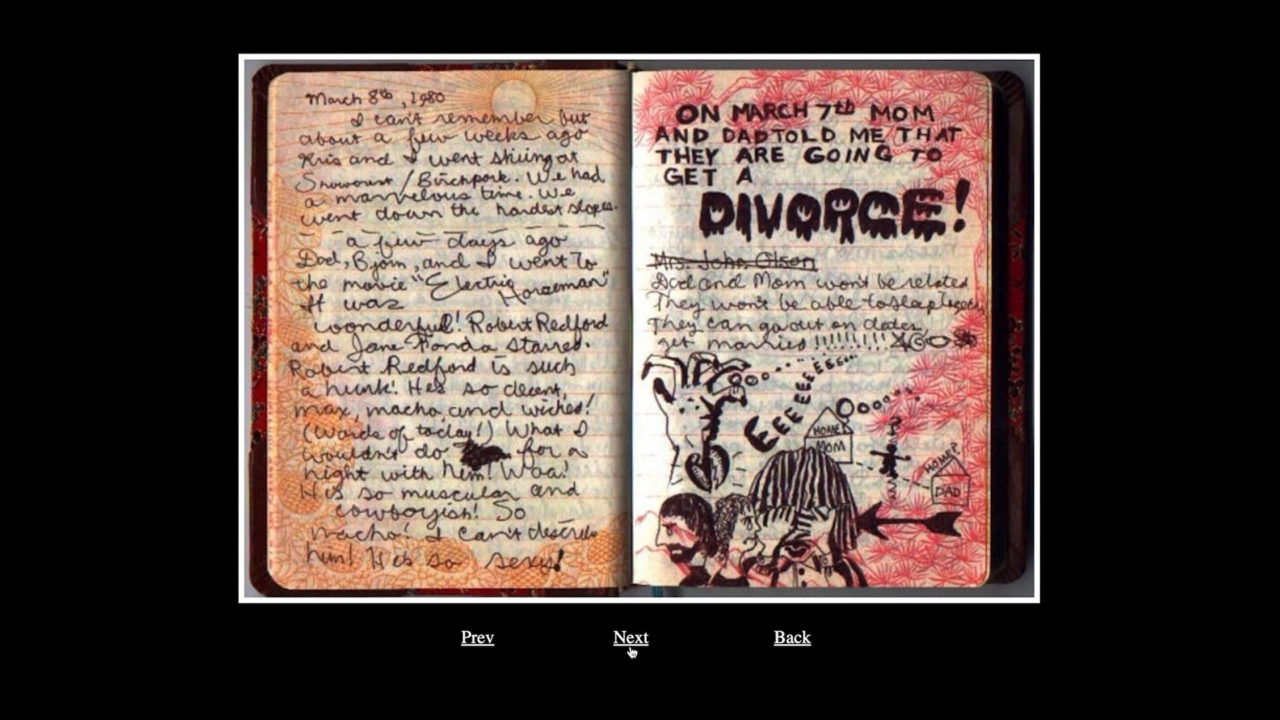 March 8th, 1980
I can't remember but
about a few weeks ago
Kris and I went skiing at
/Birchpark. We had
a marvelous time. We
went down the hardest slopes.
a few days ago
Dad, Bjorn, and I went to
the movie "Electric
Horseman"
It was
wonderful! Robert Redford
and Jane Fonda starred.
Robert Redford is such
a hunk! He's so
max, macho and
(Words of today!) What I
wouldn't do for a
night with him! Waa!
He's so muscular and
cowboyish! So
macho! I can't describe
him! He's so sexy!
ON MARCH 7th MOM
AND DAD TOLD ME THAT
THEY ARE GOING TO
GET A
DIVORCE!
Mrs. John Olson
Dad and Mom won't be related
They won't be able to
They can go out on dates,
get married !!!!!!!!
EEEEEEEEE
HOME?
MOM
HOME?
DAD
Prev
Next
Back